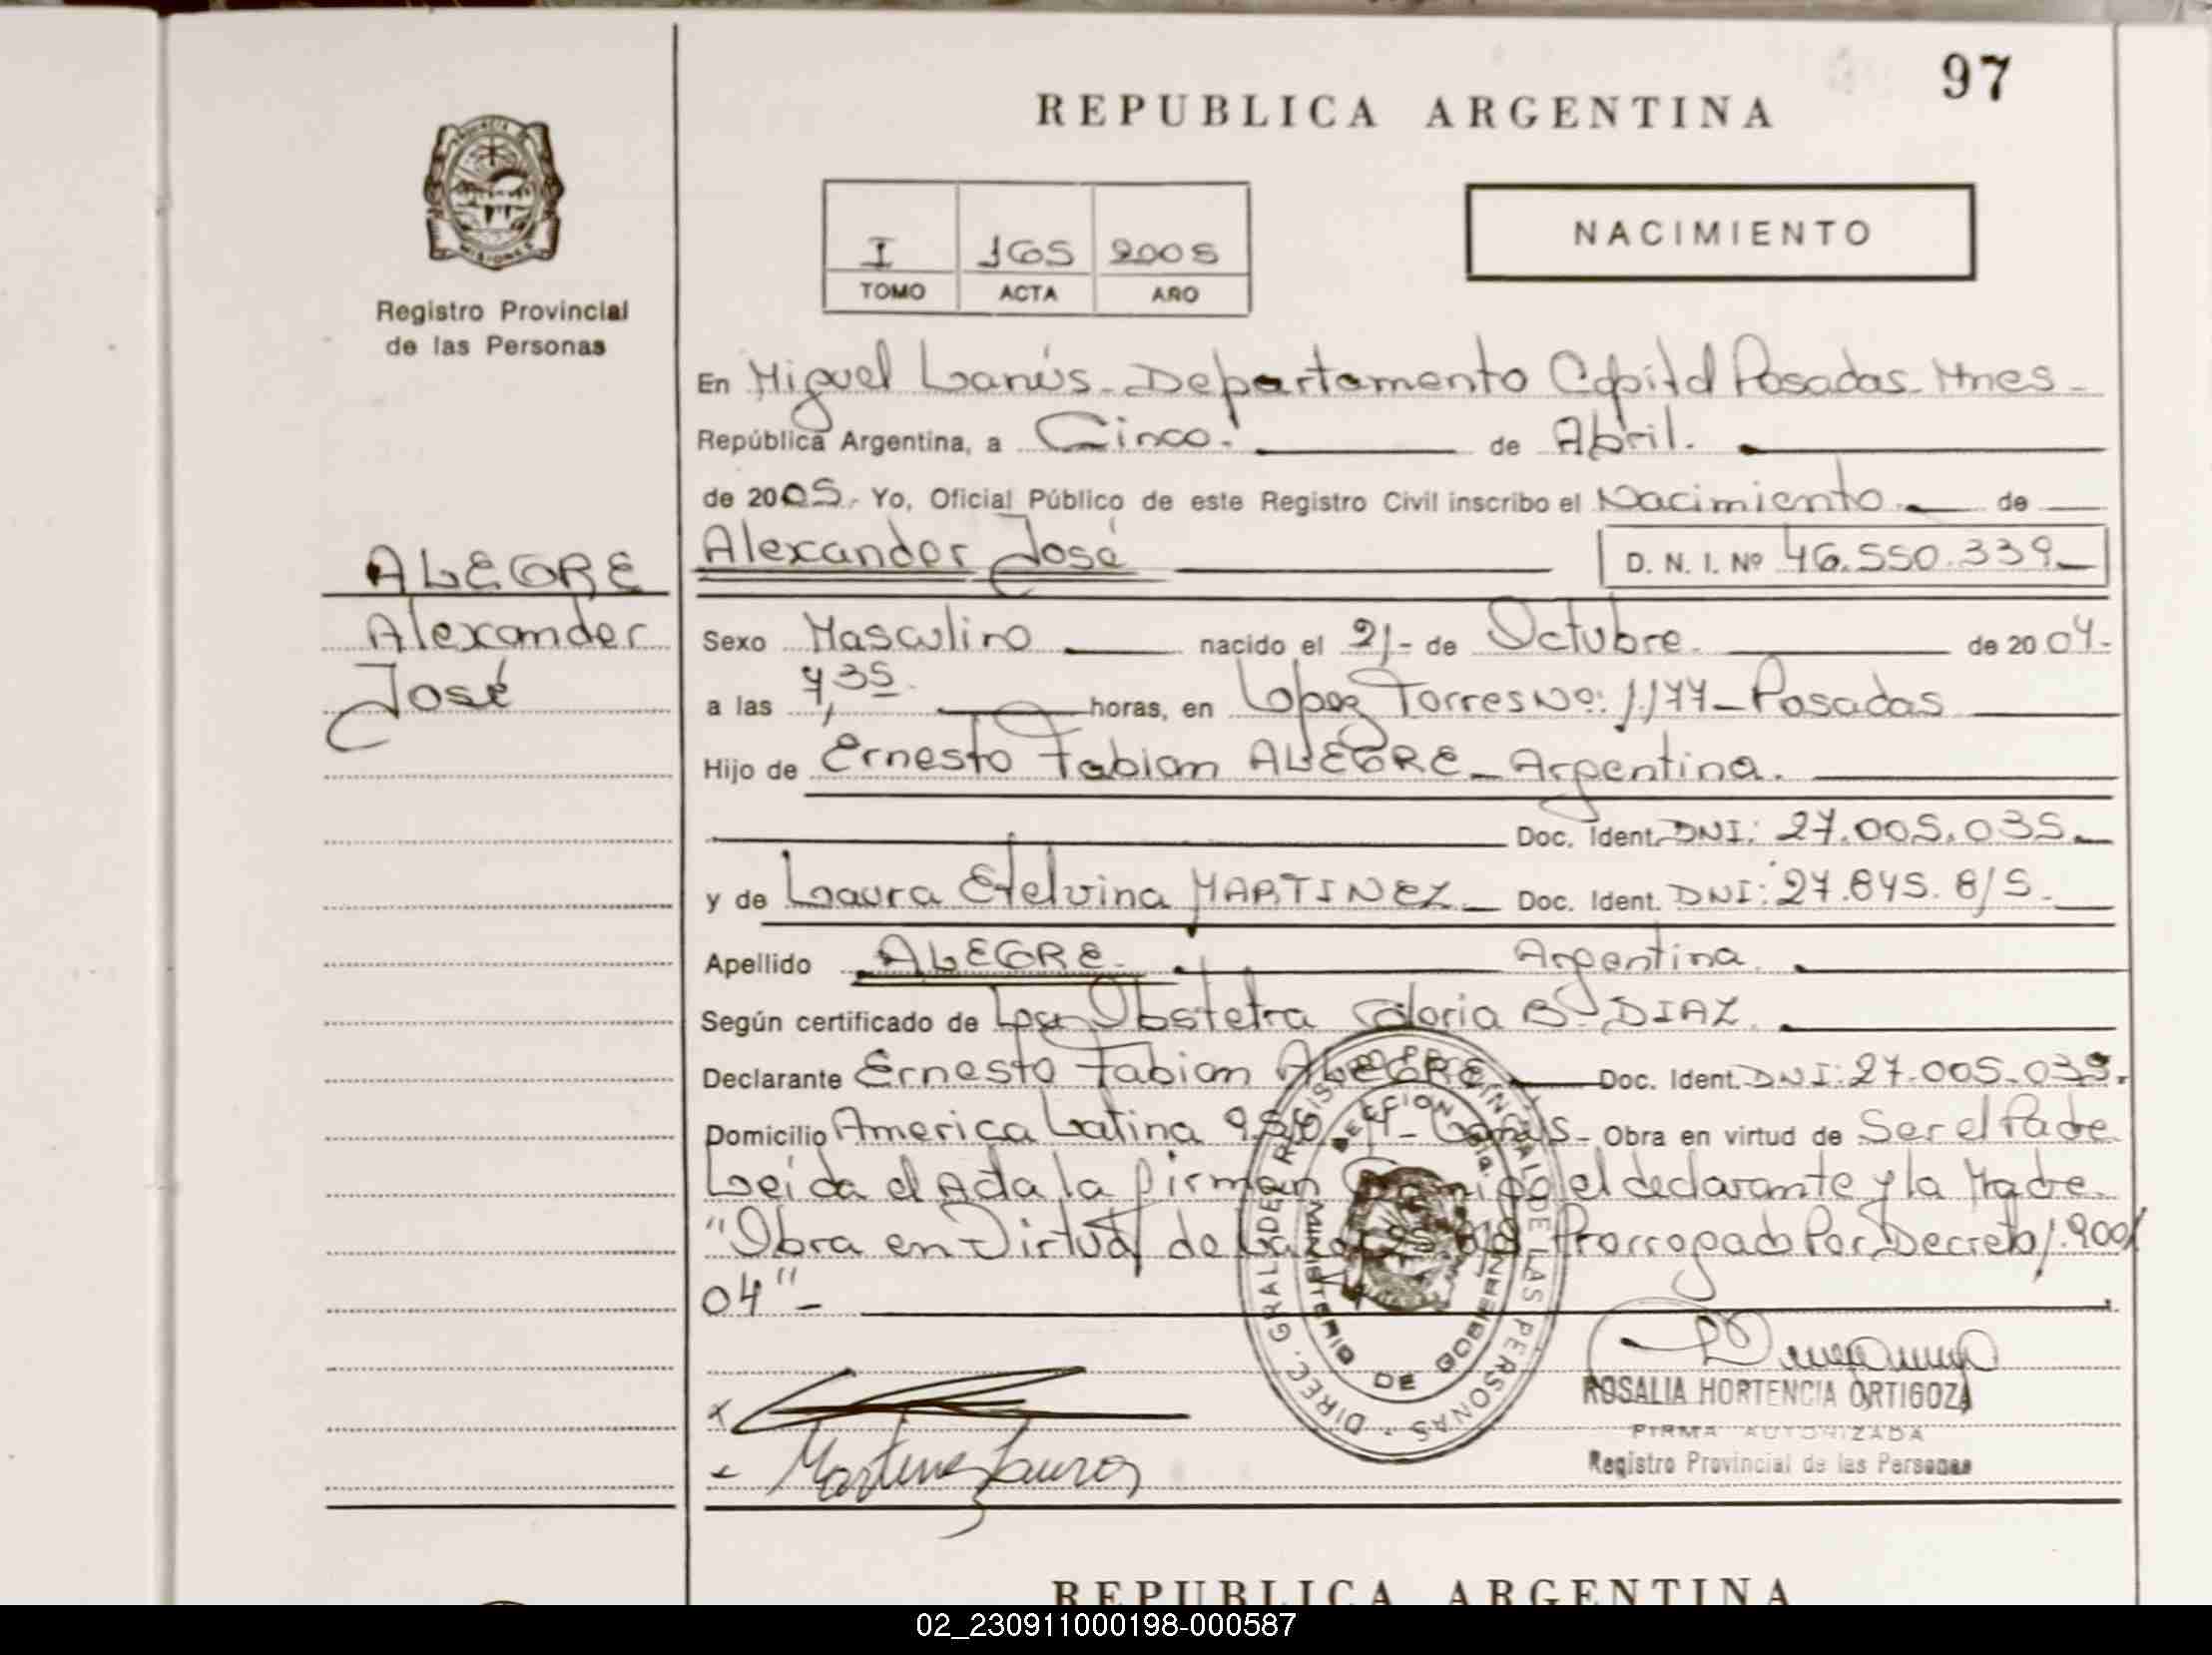 97
REPUBLICA ARGENTINA
I 165 2005
TOMO ACTA AÑO
NACIMIENTO
PROVINCIA DE MISIONES
Registro Provincial
de las Personas
En Miguel Lanús - Departamento Capital Posadas - Mnes -
República Argentina, a Cinco. de Abril.
de 2005. Yo, Oficial Público de este Registro Civil inscribo el Nacimiento de
Alexander José D. N. I. Nº 46.550.339
ALEGRE
Alexander
José
Sexo Masculino nacido el 21 - de Octubre. de 2004.
a las 7,35 horas, en López Torres Nº: 1177 - Posadas
Hijo de Ernesto Fabian ALEGRE - Argentina.
Doc. Ident. DNI: 27.005.035
y de Laura Etelvina MARTINEZ Doc. Ident. DNI: 27.845.815.
Apellido ALEGRE. Argentina
Según certificado de La Obstetra Gloria B. DIAZ
Declarante Ernesto Fabian ALEGRE Doc. Ident. DNI: 27.005.035.
Domicilio America Latina - Lanús - Obra en virtud de Ser el Padre
Leida el Acta la firman el declarante y la Madre.
"Obra en Virtud de Prorrogado Por Decreto 1.200/
04" -
DIREC. GRAL. DEL REGISTRO PROVINCIAL DE LAS PERSONAS
MINISTERIO DE GOBIERNO
Martinez Laura
ROSALIA HORTENCIA ORTIGOZA
FIRMA AUTORIZADA
Registro Provincial de las Personas
REPUBLICA ARGENTINA
02_230911000198-000587